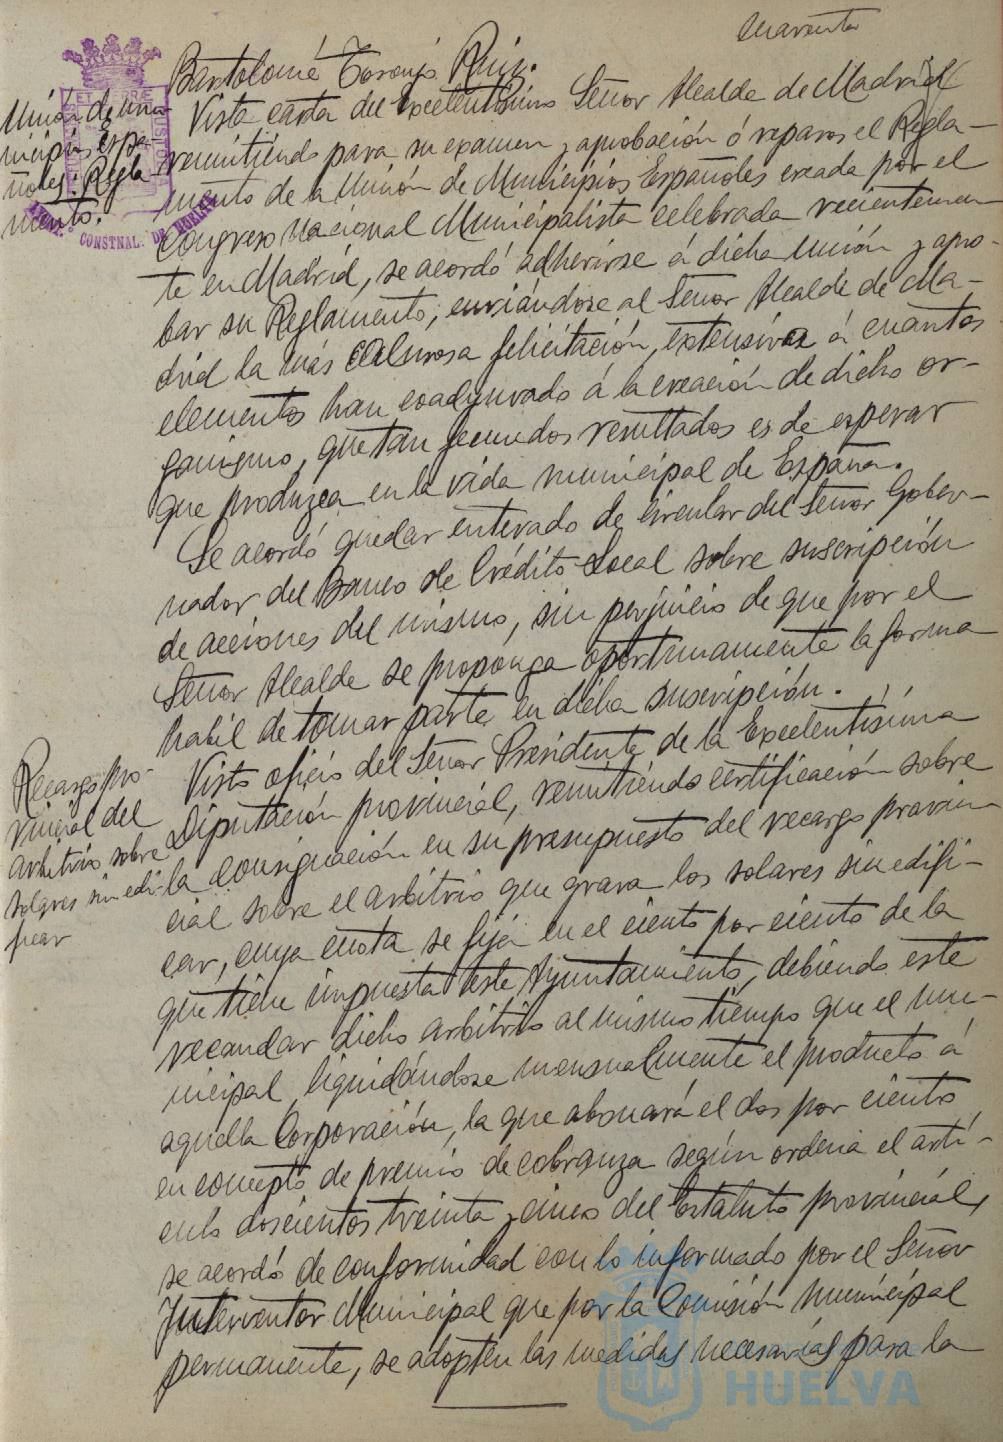 Cuarenta
Bartolomé Toronjo Ruiz.
Unión de mu-
nicipios Espa-
ñoles: Regla-
mento.
CONSTNAL. DE HUELVA
Vista carta del Excelentísimo Señor Alcalde de Madrid
remitiendo para su examen y aprobación ó reparos el Regla-
mento de la Unión de Municipios Españoles creada por el
Congreso Nacional Municipalista celebrada recientemen-
te en Madrid, se acordó adherirse á dicha Unión y apro-
bar su Reglamento, enviándose al Señor Alcalde de Ma-
drid la más calurosa felicitación, extensiva á cuantos
elementos han coadyuvado á la creación de dicho or-
ganismo, que tan fecundos resultados es de esperar
que produzca en la vida municipal de España.
Se acordó quedar enterado de circular del Señor Gober-
nador del Banco de Crédito Local sobre suscripción
de acciones del mismo, sin perjuicio de que por el
Señor Alcalde se proponga oportunamente la forma
habil de tomar parte en dicha suscripción.
Recargo pro-
vincial del
arbitrio sobre
solares sin edi-
ficar
Visto oficio del Señor Presidente de la Excelentísima
Diputación provincial, remitiendo certificación sobre
la consignación en su presupuesto del recargo provin-
cial sobre el arbitrio que grava los solares sin edifi-
car, cuya cuota se fija en el ciento por ciento de la
que tiene impuesta este Ayuntamiento, debiendo este
recaudar dicho arbitrio al mismo tiempo que el mu-
nicipal, liquidándose mensualmente el producto á
aquella Corporación, la que abonará el dos por ciento
en concepto de premio de cobranza según ordena el artí-
culo doscientos treinta y cinco del Estatuto provincial,
se acordó de conformidad con lo informado por el Señor
Interventor Municipal que por la Comisión municipal
permanente, se adopten las medidas necesarias para la
HUELVA